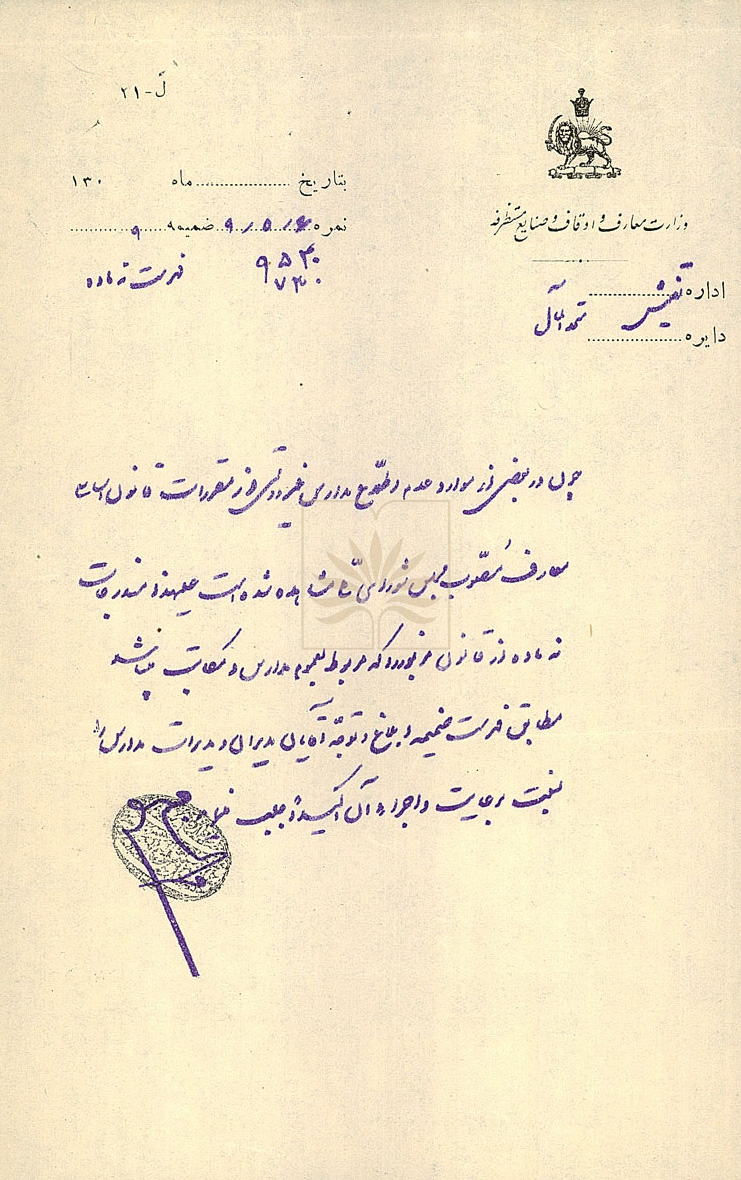 ل-۲۱
وزارت معارف و اوقاف و صنایع مستظرفه
اداره تفتیش
دایره متحدالمآل
بتاریخ ماه ۱۳۰
نمره ۹/۵/۶ ضمیمه ۹
۹۵۳۰
۷۳۰
فهرست نه ماده
چون در بعضی از موارد عدم اطلاع مدارس غیر دولتی از مقررات قانون اساسی
معارف مصوب مجلس شورای ملی مشاهده شده است علیهذا مندرجات
نه ماده از قانون مزبور را که مربوط بعموم مدارس و مکاتب میباشد
مطابق فهرست ضمیمه ابلاغ و توجه آقایان مدیران و مدیرات مدارس را
نسبت برعایت و اجراء آن اکیداً جلب